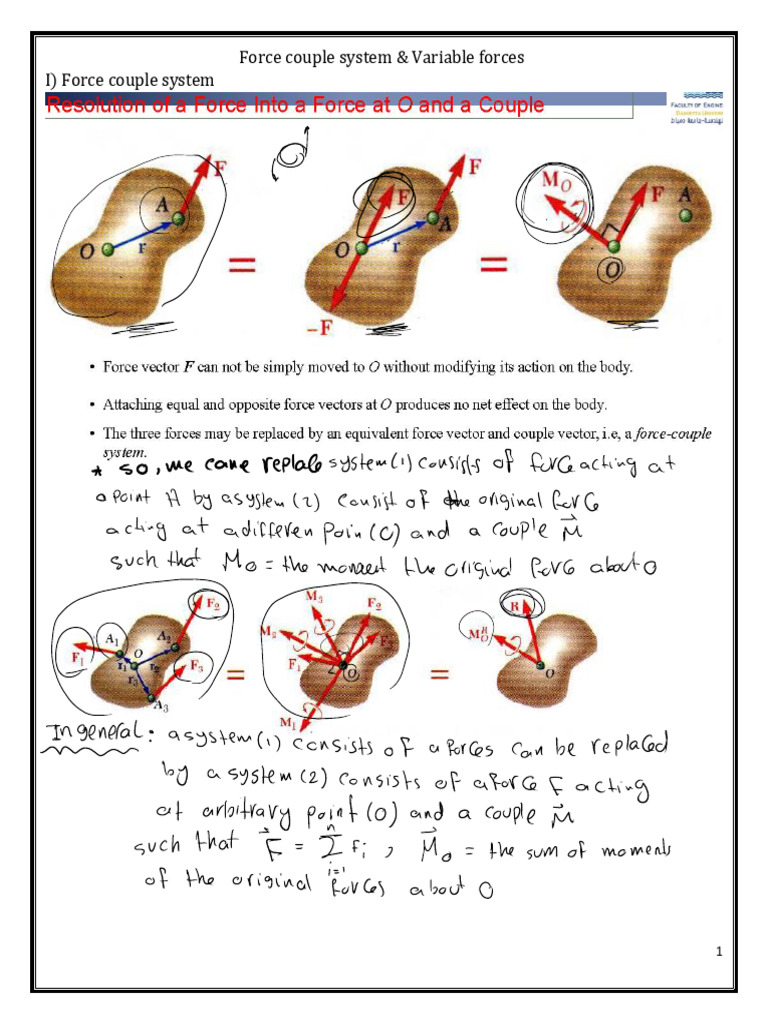 Force couple system & Variable forces
I) Force couple system
Resolution of a Force Into a Force at O and a Couple
FACULTY OF ENGINE
F
A
O
r
=
F
F
O
A
r
-F
=
M_O
F
A
O
• Force vector F can not be simply moved to O without modifying its action on the body.
• Attaching equal and opposite force vectors at O produces no net effect on the body.
• The three forces may be replaced by an equivalent force vector and couple vector, i.e, a force-couple
system.
* so, we cane replace system(1) consists of force acting at
a point A by a system(2) consist of the original force
acting at a differen poin(O) and a couple M⃗
such that M_O = the moment the original force about O
A₁
F₁
O
A₂
F₂
r₁
r₂
r₃
F₃
A₃
=
M₃
F₂
M₂
F₃
F₁
O
M₁
=
R
M_O^R
O
In general: a system(1) consists of a forces can be replaced
by a system(2) consists of a force F acting
at arbitrary point(O) and a couple M⃗
such that F⃗ = Σ_{i=1}^{n} F_i , M⃗_O = the sum of moments
of the original forces about O
1